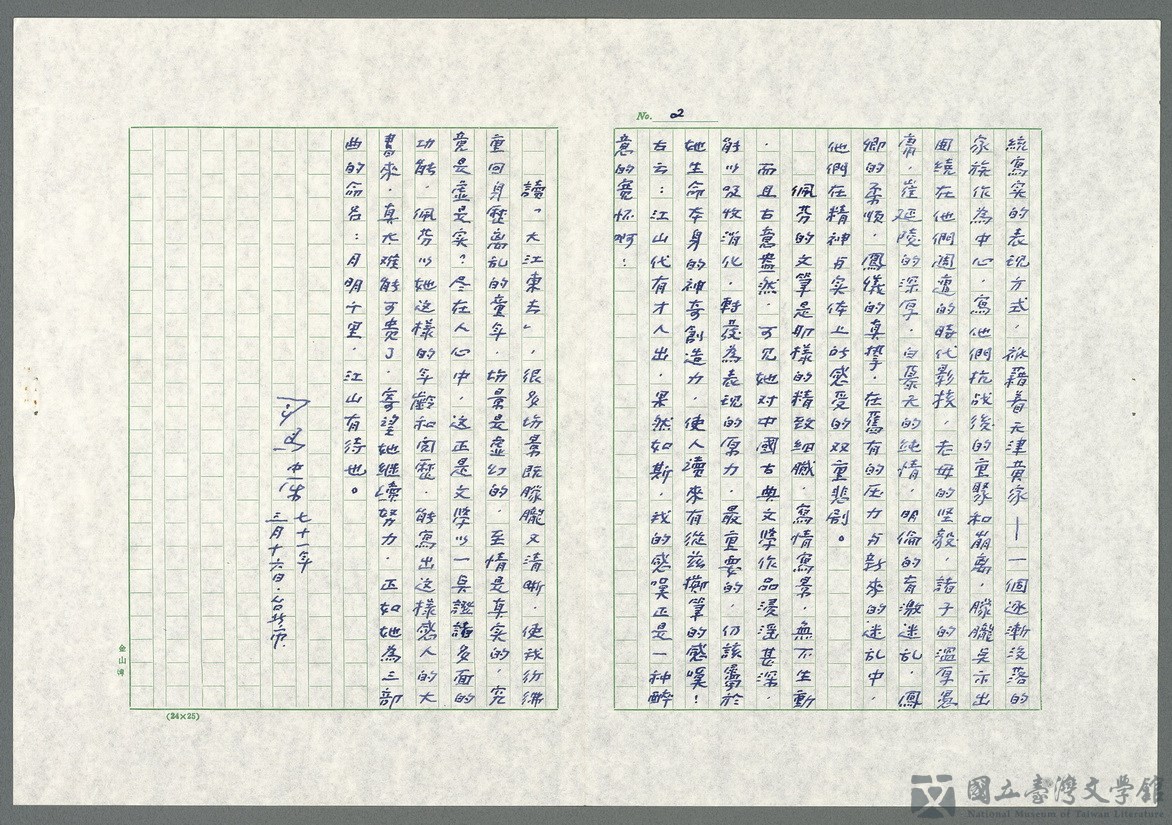 No. 02
統寫实的表现方式，祇藉着天津黄家——一個逐漸没落的
家族作為中心，寫他們抗战後的重聚和崩离，朦朧吳示出
圍繞在他們周遭的時代影核，老母的坚毅，諸子的溫厚愚
庸，崔延陵的深厚，白蒙元的纯情，明倫的有激迷乱，鳳
卿的柔順，鳳儀的真摯，在舊有的压力与新來的迷乱中，
他們在精神与实体上所感受的双重悲剧。
佩芬的文筆是那樣的精致細膩，寫情寫景，無不生動
，而且古意盎然，可见她对中國古典文学作品浸淫甚深，
能以吸收消化，轉發為表现的原力，最重要的，仍該歸於
她生命本身的神奇創造力，使人讀來有從兹擲筆的感嘆！
古云：江山代有才人出，果然如斯，我的感嘆正是一种醉
意的寬怀啊！
讀「大江東去」，很多埸景既朦朧又清晰，使我彷彿
重回身歷离乱的童年，埸景是虚幻的，至情是真实的，究
竟是虚是实？尽在人心中，这正是文学以一具證諸多面的
功能，佩芬以她这樣的年齡和閱歷，能寫出这樣感人的大
書來，真尤难能可贵了，寄望她继續努力，正如她為三部
曲的命名：月明千里，江山有待也。
司馬中原 七十一年
三月十六日·台北市
金山牌
(24×25)
國立臺灣文學館
National Museum of Taiwan Literature